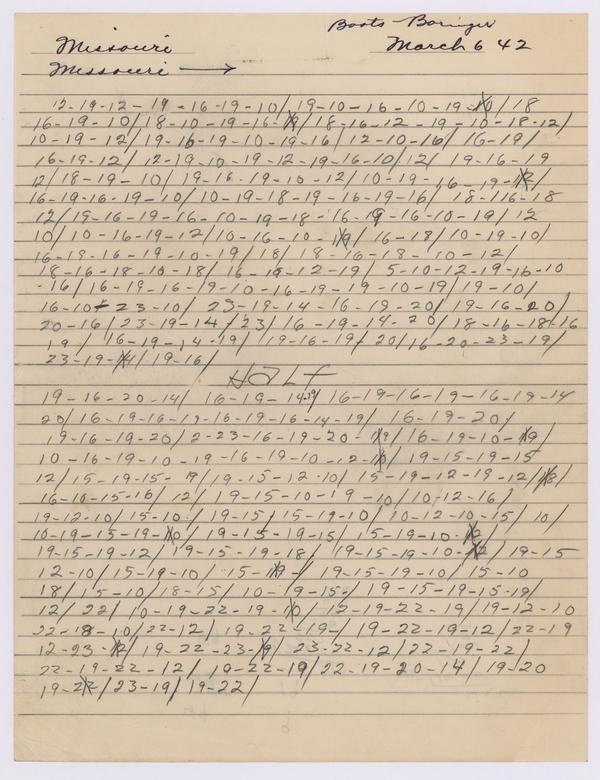 Boots Boringer
Missouri March 6 42
Missouri →
12-19-12-19-16-19-10/19-10-16-10-19-10/18
16-19-10/18-10-19-16-19/18-16-12-19-10-18-12/
10-19-12/19-16-19-10-19-16/12-10-16/16-19/
16-19-12/12-19-10-19-12-19-16-10/12/19-16-19
12/18-19-10/19-16-19-10-12/10-19-16-19-12/
16-19-16-19-10/10-19-18-19-16-19-16/18-16-18
12/19-16-19-16-10-19-18-16-19-16-10-19/12
10/10-16-19-12/10-16-10-19/16-18/10-19-10/
16-19-16-19-10-19/18/18-16-18-10-12/
18-16-18-10-18/16-19-12-19/5-10-12-19-16-10
-16/16-19-16-19-10-16-19-19-10-19/19-10/
16-10-23-10/23-19-14-16-19-20/19-16-20/
20-16/23-19-14/23/16-19-14-20/18-16-18-16
19/16-19-14-19/19-16-19/20/16-20-23-19/
23-19-14/19-16/
HALF
19-16-20-14/16-19-14-19/16-19-16-19-16-19-14
20/16-19-16-19-16-19-16-14-19/16-19-20/
19-16-19-20/2-23-16-19-20-19/16-19-10-19/
10-16-19-10-19-16-19-10-12-10/19-15-19-15
12/15-19-15-19/19-15-12-10/15-19-12-19-12/18/
16-10-15-16/12/19-15-10-19-10/10-12-16/
19-12-10/15-10/19-15/15-19-10/10-12-10-15/10/
10-19-15-19-10/19-15-19-15/15-19-10-12/
19-15-19-12/19-15-19-18/19-15-19-10-12/19-15
12-10/15-19-10/15-19/19-15-19-10/15-10
18/15-10/18-15/10-19-15-/19-15-19-15-19/
12/22/10-19-22-19-10/12-19-22-19/19-12-10
22-18-10/22-12/19-22-19-/19-22-19-12/22-19
12-23-12/19-22-23-19/23-22-12/22-19-22/
22-19-22-12/19-22-19/22-19-20-14/19-20
19-22/23-19/19-22/